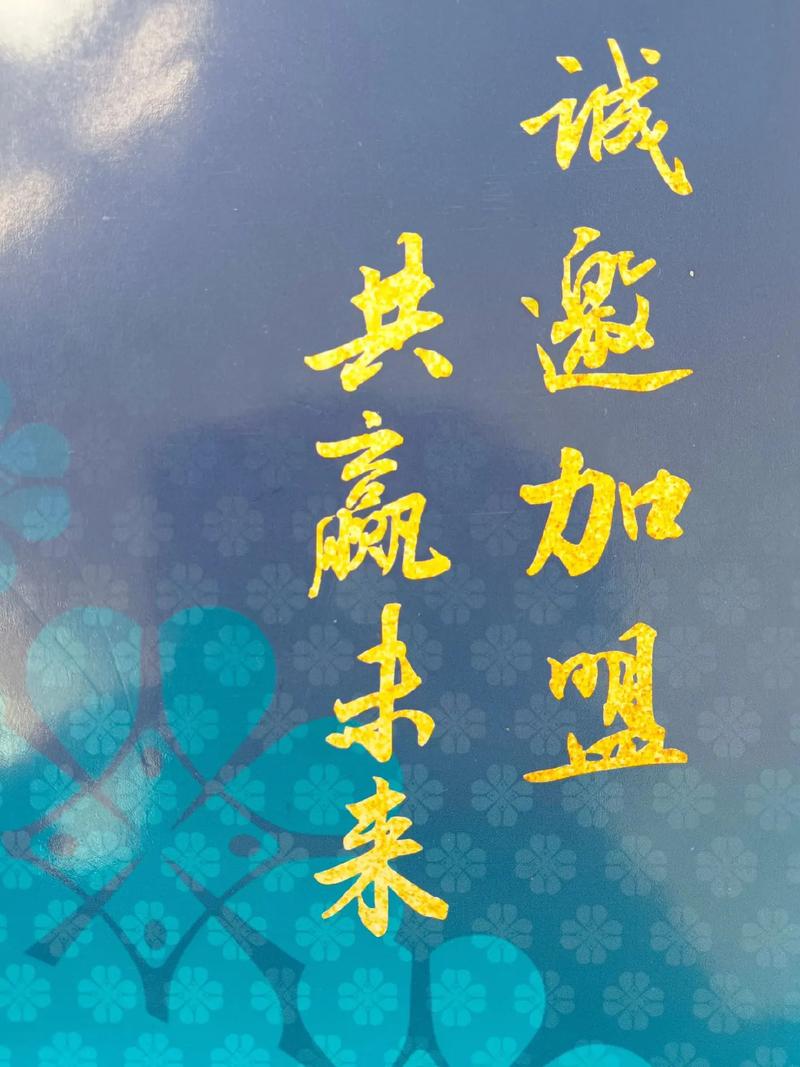 诚邀加盟
共赢未来